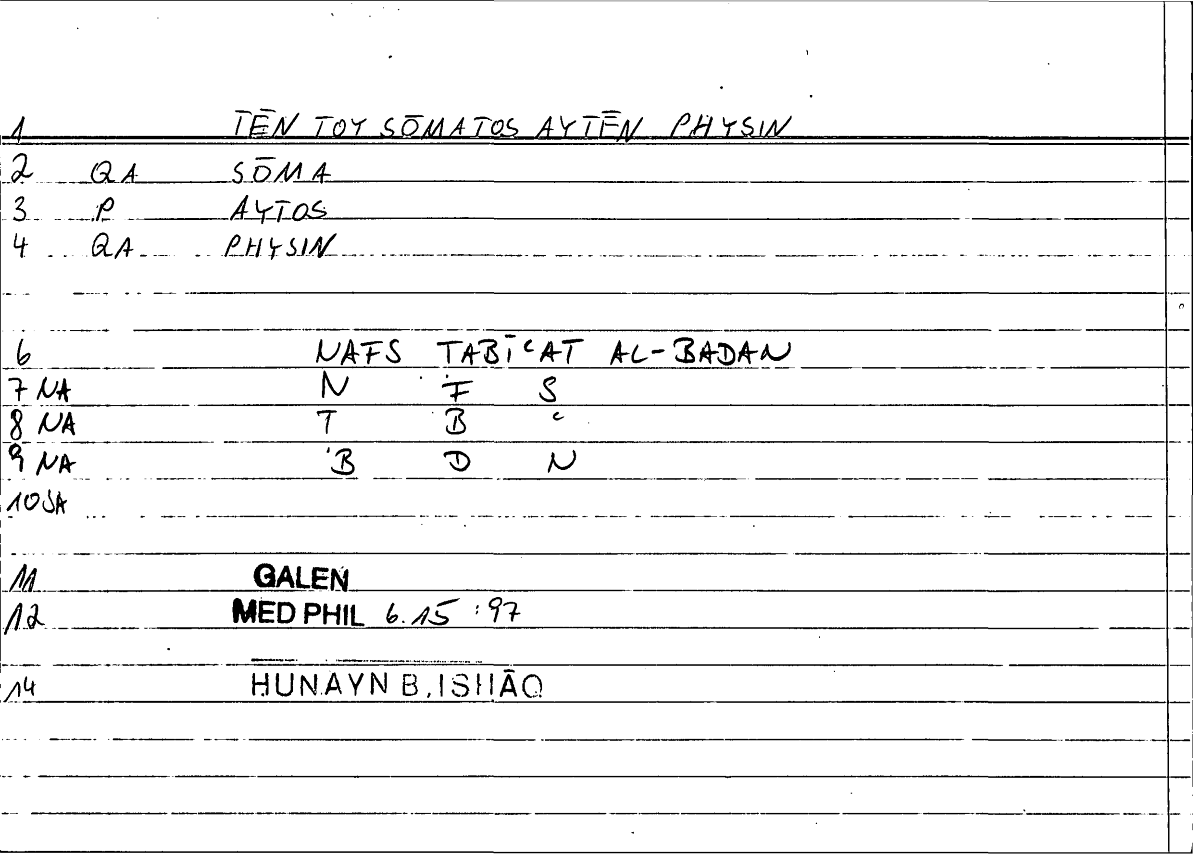 1 TĒN TOY SŌMATOS AYTĒN PHYSIN
2 QA SŌMA
3 P AYTOS
4 QA PHYSIN
6 NAFS TABĪʿAT AL-BADAN
7 NA N F S
8 NA T B ʿ
9 NA B D N
10 SA
11 GALEN
12 MED PHIL 6.15 :97
14 HUNAYN B. ISHĀQ